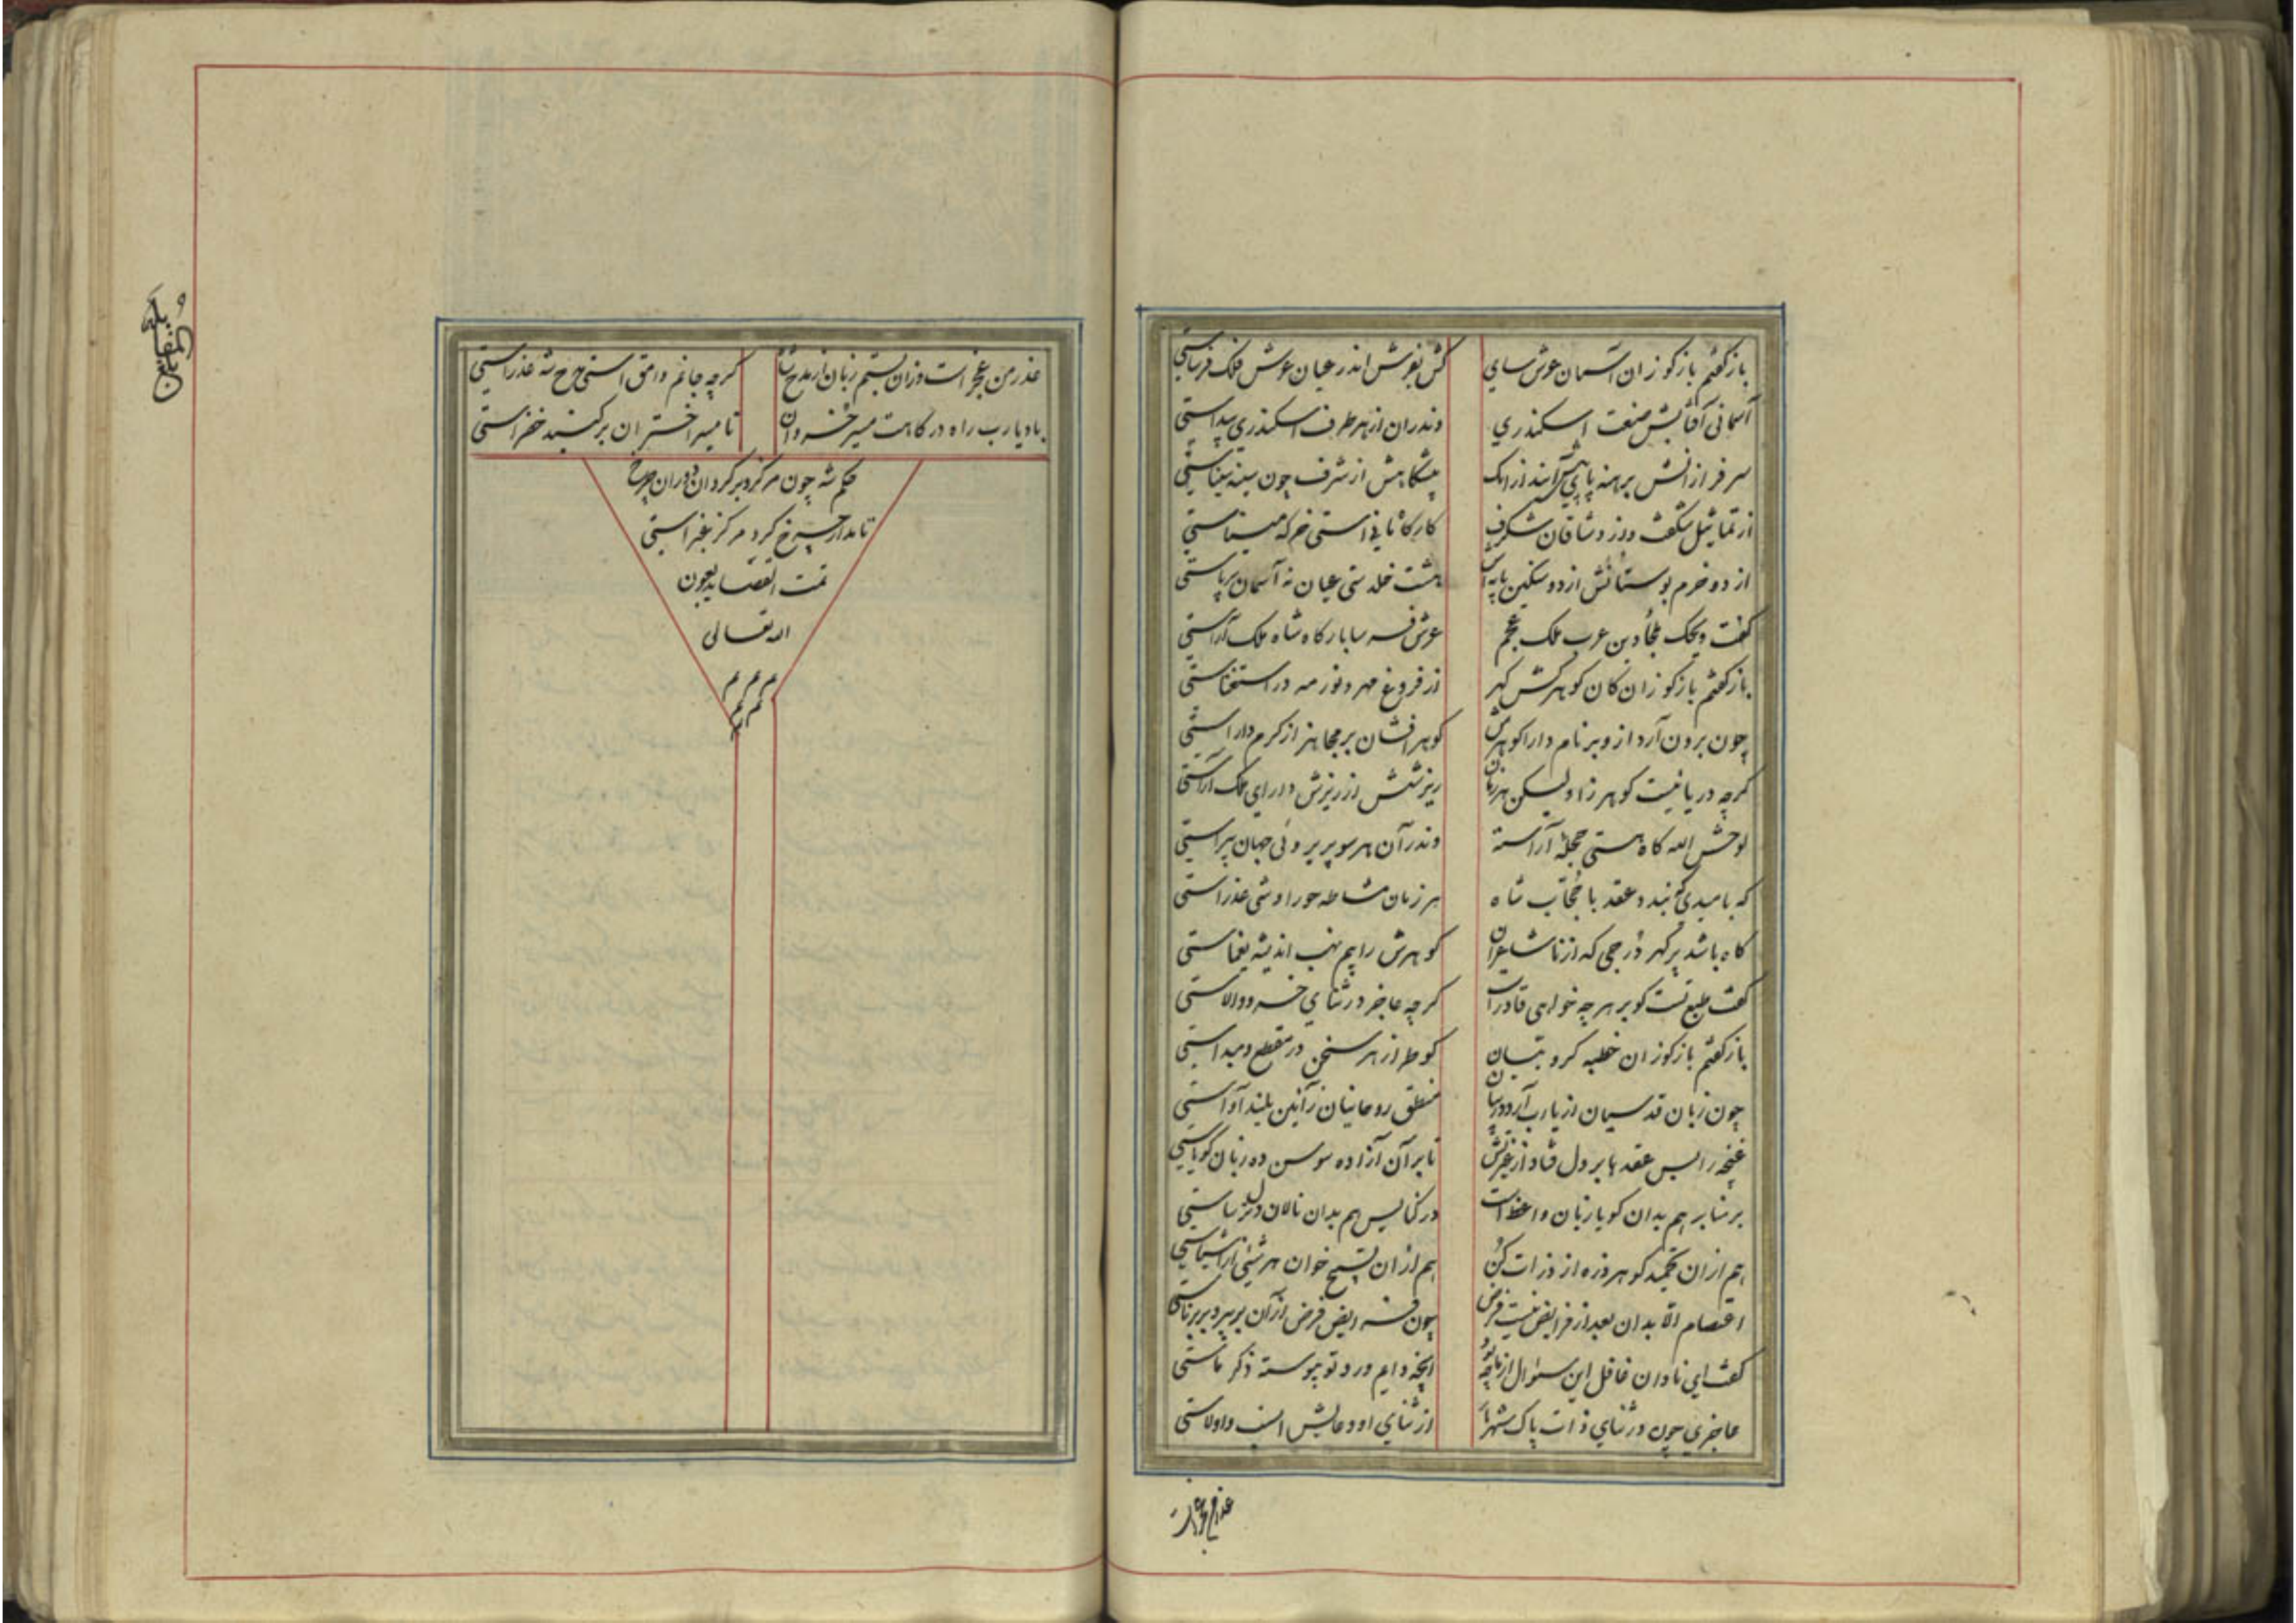 باز گفتم باز گو زان آسمان عرش سای کش بفرش اندر عیان عرش فلک فرساستی
آسمانی آفتابش صنعت اسکندری وندران از هر طرف اسکندری پیداستی
سر فرازانش برهنه پای پیش آیند از آنک پیشگاهش از شرف چون سینهٔ سیناستی
از تماثیل شگفت و ز وشاقان شگرف کارگاه مانی استی خرگه
از دو خرم بوستانش از دو سنگین پایه هشت خلدستی عیان نه آسمان برپاستی
گفت ویحک ملجأ دین عرب ملک عجم عرش فرسا بارگاه شاه ملک آراستی
باز گفتم باز گو زان کان گوهر کش گهر از فروغ مهر و نور مه در استغناستی
چون برون آرد از و بر نام دارا گوهرش گوهر افشان بر از کرم داراستی
گرچه دریا نیست گوهر زا ولیکن هر زمان ریزشش از ریزش دارای ملک آراستی
لوحش الله گاه هستی حجلهٔ آراسته وندر آن هر سو پریروئی جهان پیراستی
که با عقد با شاه هر زمان مشاطه حورا وشی عذراستی
گاه باشد پر گهر درجی که از ناشاعران گوهرش را بیم نهب اندیشه یغماستی
گفت طبع تست کو بر هرچه خواهی قادر است گرچه عاجز در ثنای خسرو والاستی
باز گفتم باز گو زان خطبه کروبیان کو طراز هر سخن در مقطع و مبداستی
چون زبان قدسیان از یارب آرد در منطق روحانیان ز آئین بلند آواستی
غنچه را بس عقدها بر دل فتاد از غیرتش تا بر آن آزاده سوسن ده زبان گویاستی
بر منابر هم بدان گویا زبان واعظ است در کنایس هم بدان نالان دل ترساستی
هم از آن تحمید گو هر ذره از ذرات کن هم از آن تسبیح خوان هر شیئی از اشیاستی
اعتصام الا بدان بعد از فرایض نیست فرض چون فرایض فرض از آن بر پیر و بر برناستی
گفت ای نادان غافل این سئوال از ما چه بود آنچه دایم ورد تو پیوسته ذکر ماستی
عاجزی چون در ثنای ذات پاک شهریار از ثنای او دعایش انسب و اولاستی
عذر من عجز است
عذر من عجز است وزان بستم زبان از مدح شاه گرچه جانم وامق استی مدح شه عذراستی
باد یارب راه درگاهت مسیر خسروان تا مسیر اختران بر گنبد خضراستی
حکم شه چون مرکز و بر گرد آن دوران چرخ
تا مدار چرخ گرد مرکز غبراستی
تمت القصاید بعون
الله تعالی
م م م